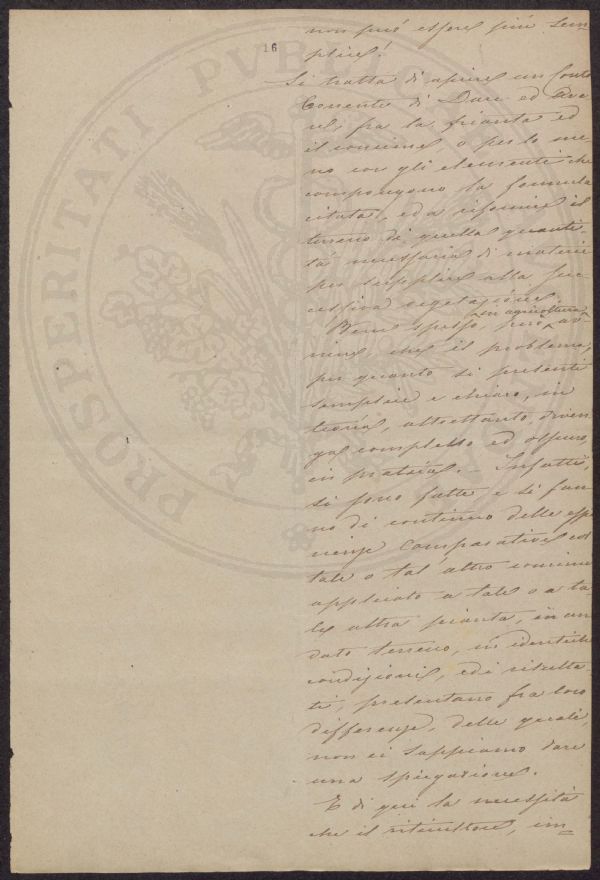 16
non può essere più sem=
plice!
Si tratta di aprire un Conto
Corrente di Dare ed Ave
re, fra la pianta ed
il concime o per lo me=
no con gli elementi che
compongono la formula
citata, ed a rifornire il
terreno di quella quanti=
tà necessaria di materie
per supplire alla suc=
cessiva vegetazione.
Bene spesso, però, in agricoltura av=
viene, che il problema,
per quanto si presenti
semplice e chiaro, in
teoria, altrettanto diven
ga complesso ed oscuro,
in pratica. – Infatti,
si sono fatte e si fan=
no di continuo delle espe
rienze comparative col
tale o tal'altro concime
applicato a tale o a ta
le altra pianta, in un
dato terreno, in identiche
condizioni, ed i risulta=
ti, presentano fra loro
differenze, delle quali,
non ci sappiamo dare
una spiegazione.
E di qui la necessità
che il viticultore, im=
PROSPERITATI PVBLIC